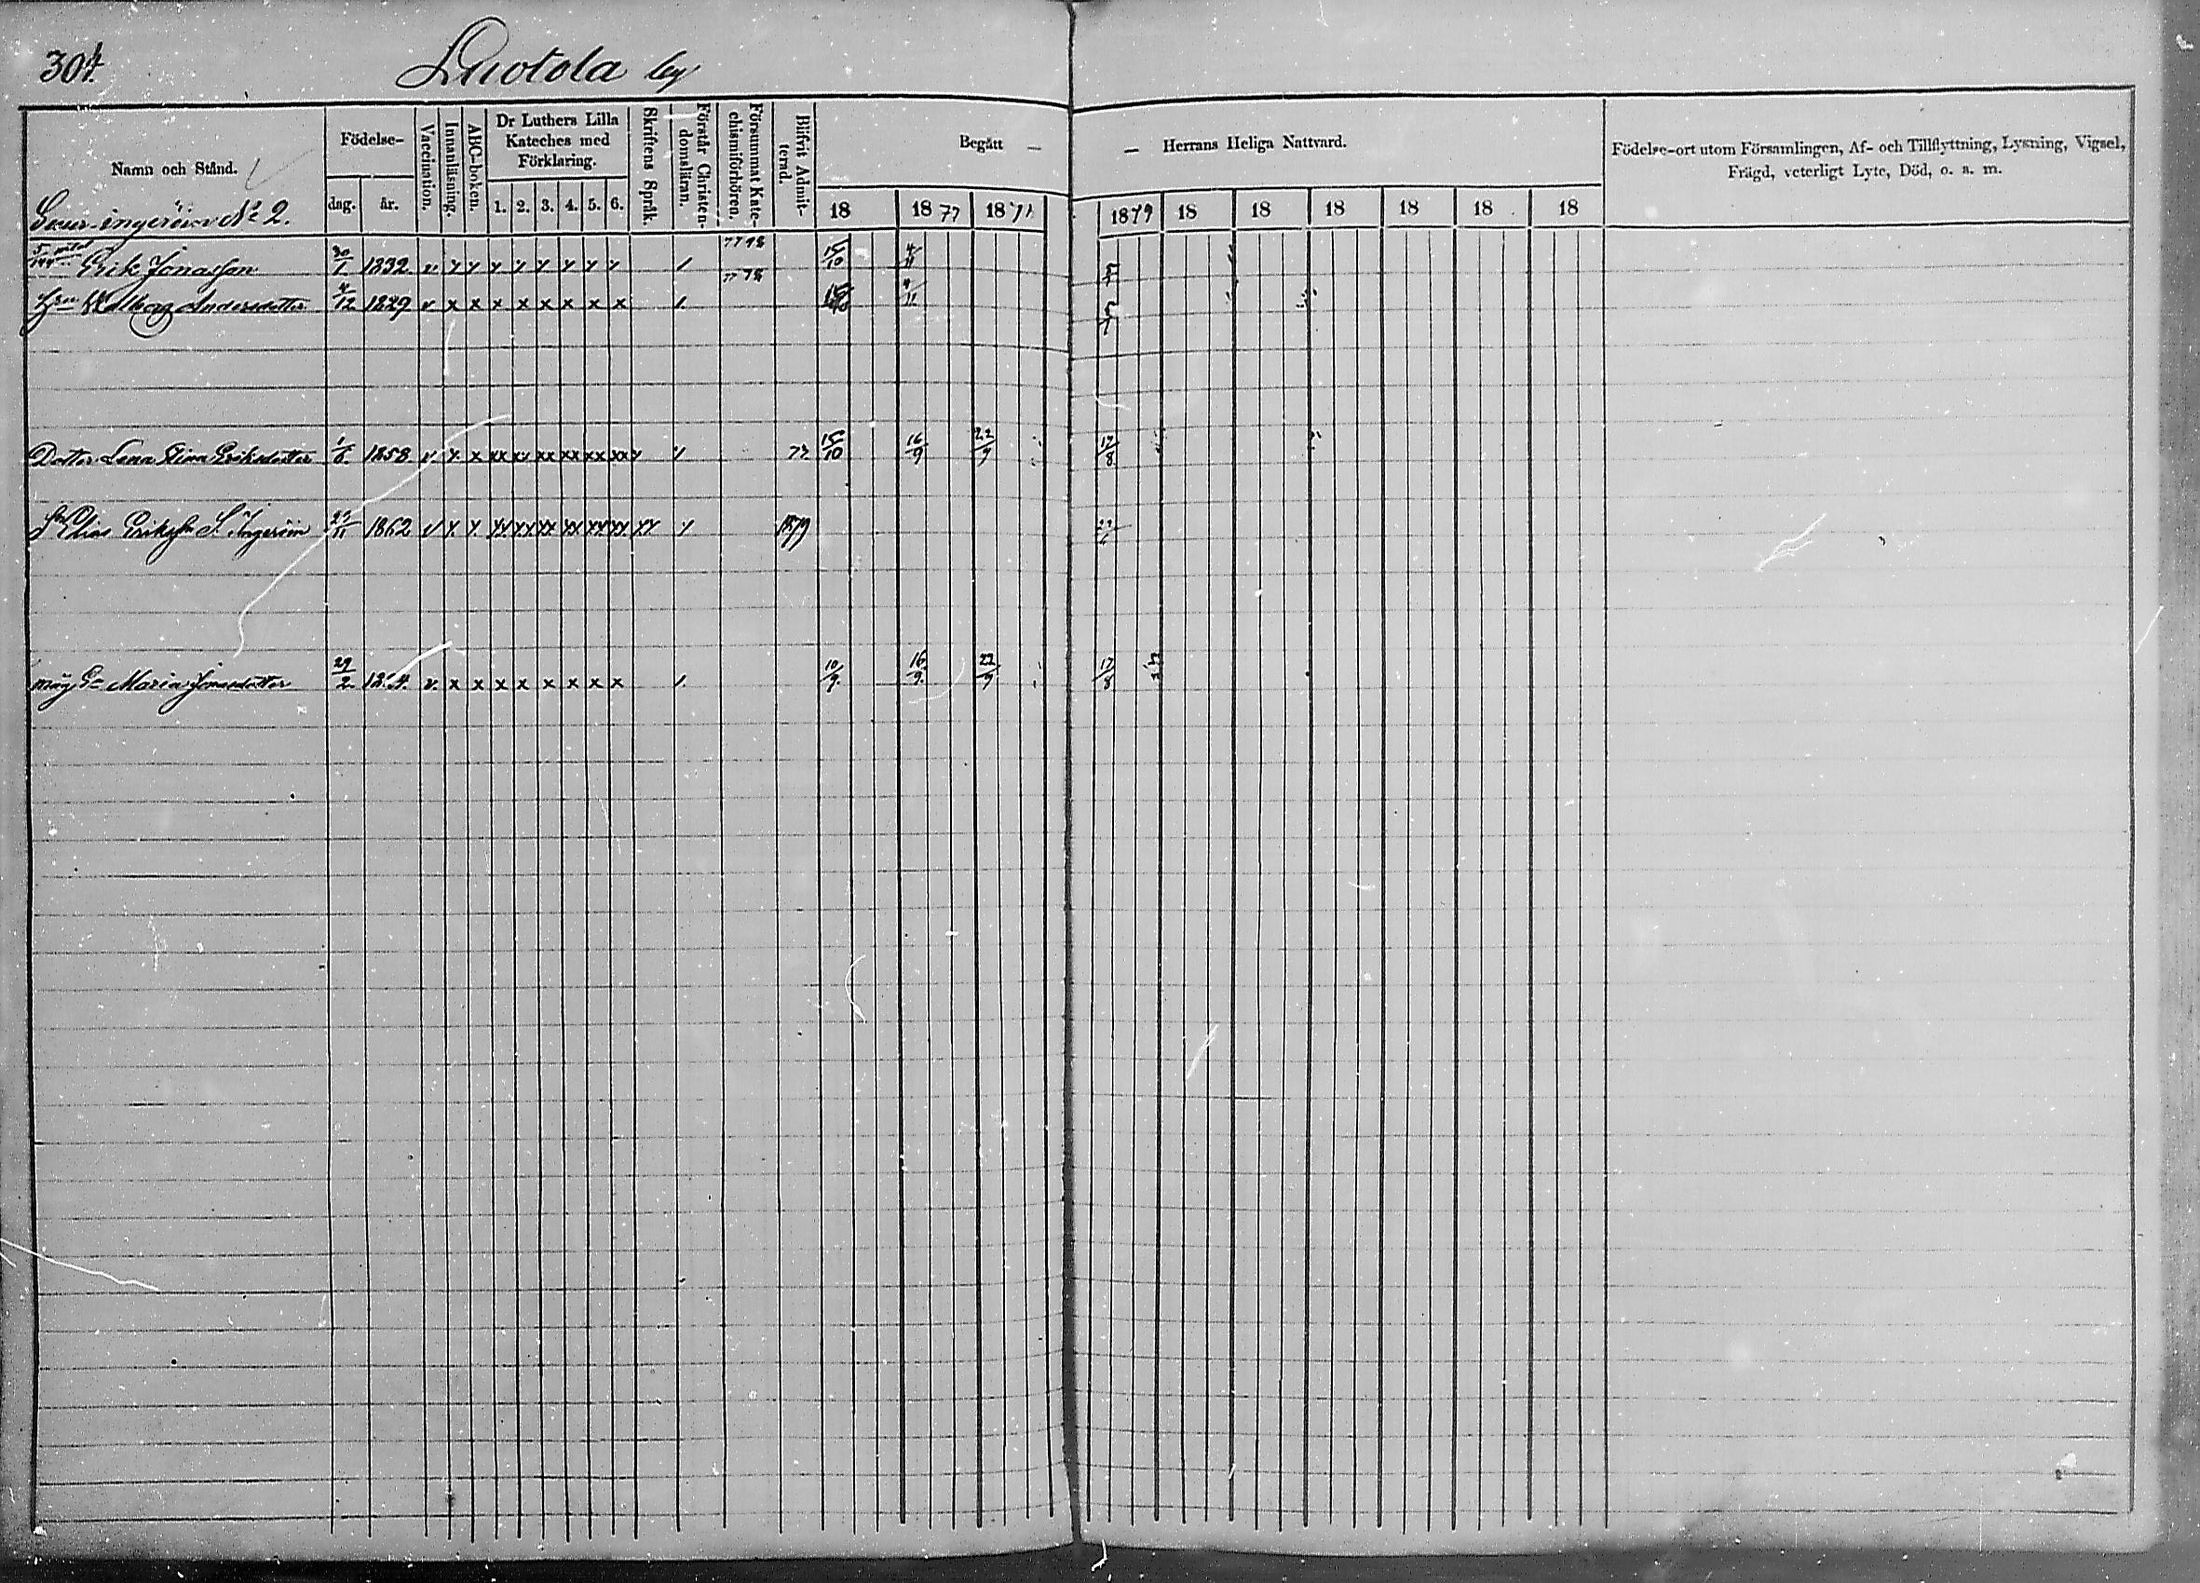 304. Luotola by
Namn och Stånd.
Födelse-
dag. år.
Vaccination.
Innanläsning.
ABC-boken.
Dr Luthers Lilla
Kateches med
Förklaring.
1. 2. 3. 4. 5. 6.
Skriftens Språk.
Förstår Christen-
domsläran.
Försummat Kate-
chismiförhören.
Blifvit Admit-
terad.
Begått — — Herrans Heliga Nattvard.
18 1877 18 1879 18 18 18 18 18 18
Födelse-ort utom Församlingen, Af- och Tillflyttning, Lysning, Vigsel,
Frägd, veterligt Lyte, Död, o. a. m.
Suur-ingeröin No 2.
Erik Jonasson 30/1 1832 v y y y y y y y y / 77 78 15/10 4/11 5/1
Hru Walborg Andersdotter 4/12 1829 v x x x x x x x x / 77 78 4/11 5/1
Dotter Lena Stina Eriksdotter 1/8 1858 v y x xx xx xx xx xx xx y y 77 15/10 16/9 22/9 17/8
Sn Elias Eriksson S. Ingeröin 1862 v y. y. yy yy yy yy yy yy yy y 1879
Maria Jonasdotter 29/2 v. x x x x x x x x / 10/9. 16/9. 22/9 17/8